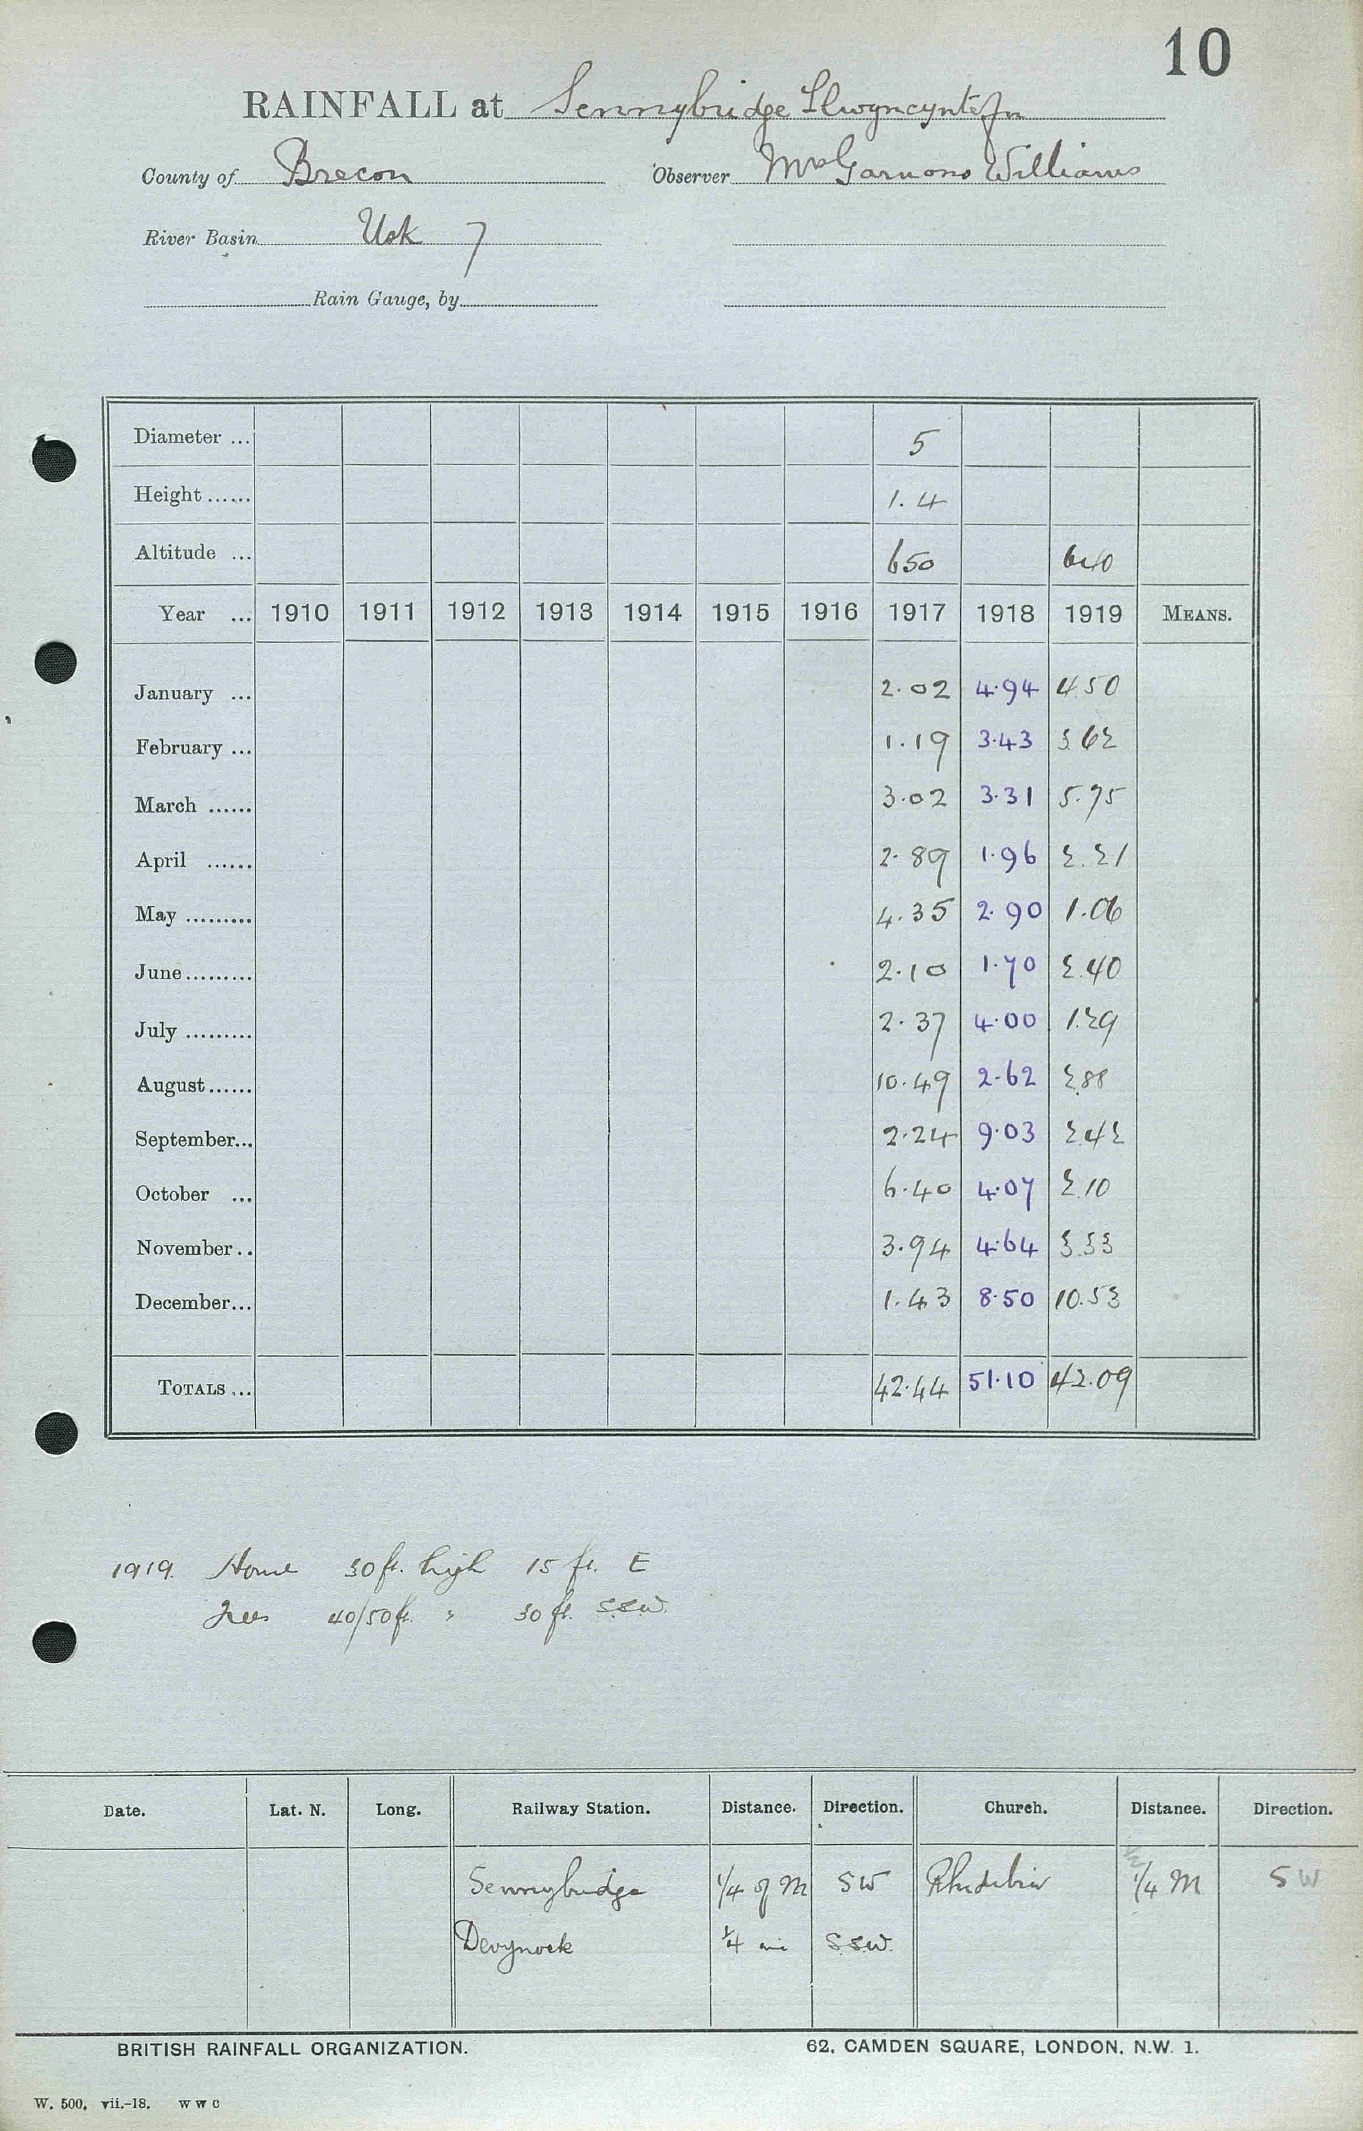 10
RAINFALL at Sennybridge Llwyncyntefin
County of Brecon Observer Mrs Garnons Williams
River Basin Usk 7
Rain Gauge, by
Diameter ... 5
Height ...... 1.4
Altitude ... 650 640
Year ... 1910 1911 1912 1913 1914 1915 1916 1917 1918 1919 MEANS.
January ... 2.02 4.94 4.50
February ... 1.19 3.43 3.62
March ...... 3.02 3.31 5.75
April ...... 2.89 1.96 2.21
May ......... 4.35 2.90 1.06
June ......... 2.10 1.70 2.40
July ......... 2.37 4.00 1.29
August ...... 10.49 2.62 2.88
September... 2.24 9.03 2.42
October ... 6.40 4.07 2.10
November .. 3.94 4.64 3.33
December... 1.43 8.50 10.53
TOTALS ... 42.44 51.10 42.09
1919. House 30 ft. high 15 ft. E
Trees 40/50 ft. " 30 ft. S.S.W.
Date. Lat. N. Long. Railway Station. Distance. Direction. Church. Distance. Direction.
Sennybridge 1/4 of M SW 1/2 1/4 M SW
Devynock 1/4 mi S.S.W.
BRITISH RAINFALL ORGANIZATION. 62, CAMDEN SQUARE, LONDON, N.W. 1.
W. 500. vii.-18. W W C